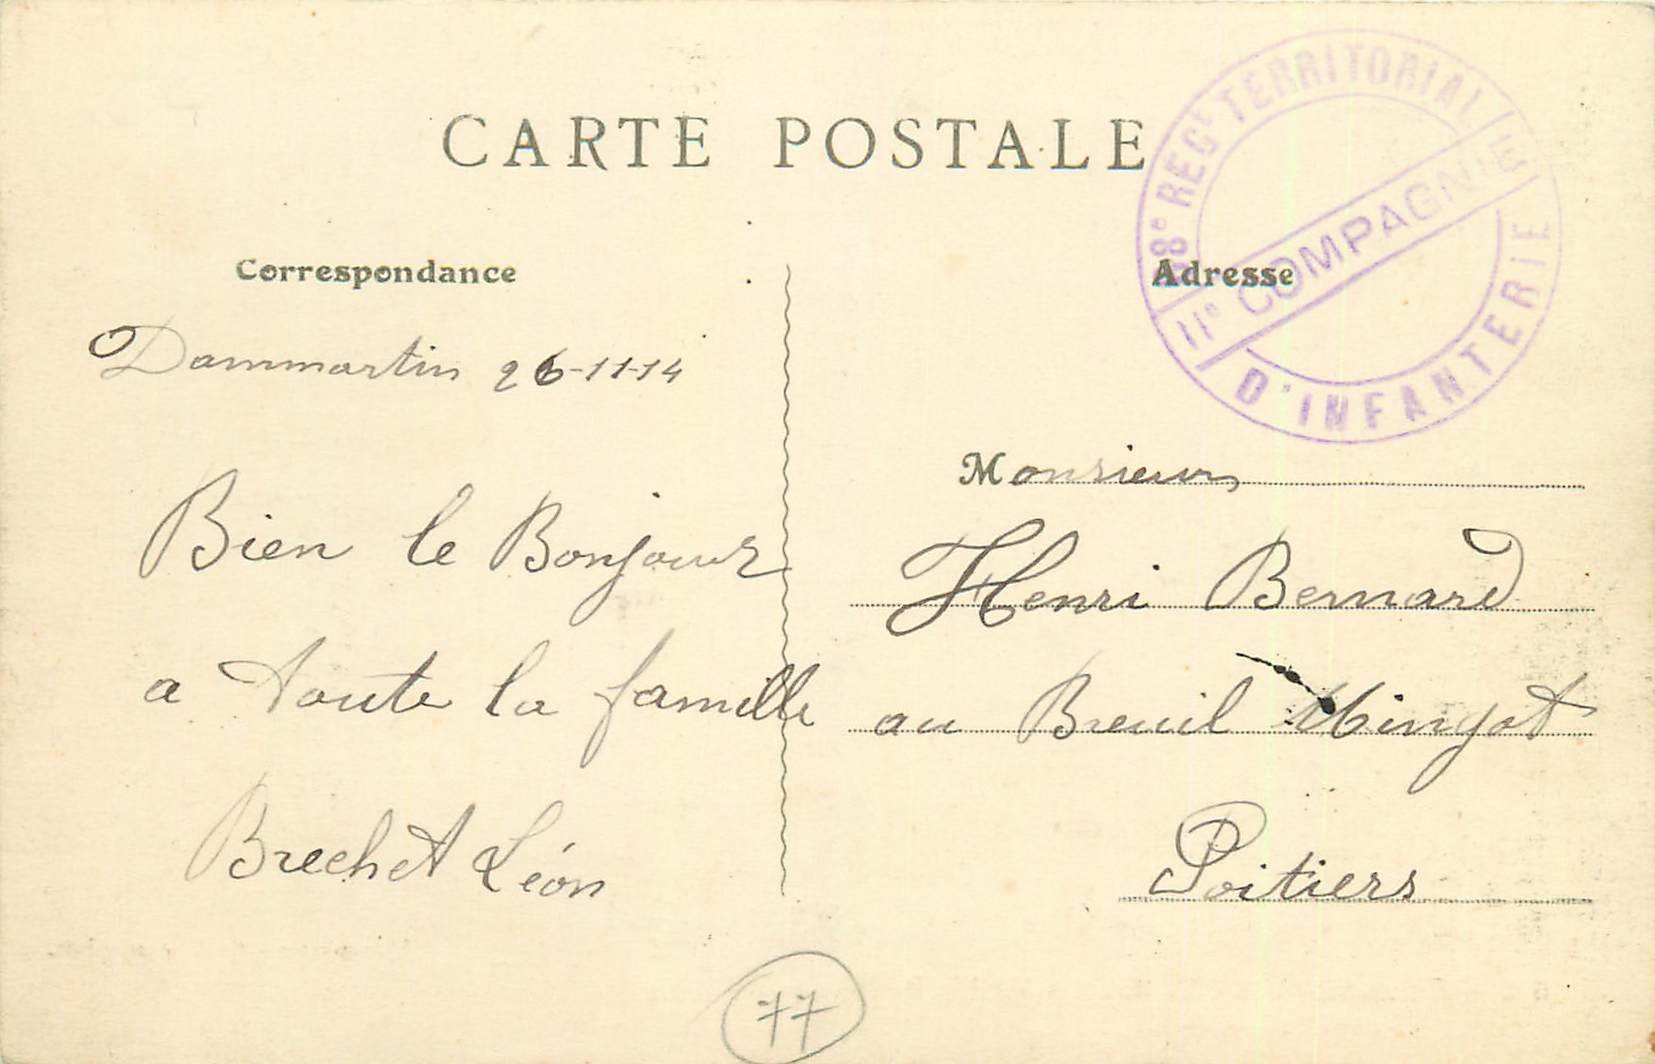 CARTE POSTALE
REGt TERRITORIAL
11e COMPAGNIE
D'INFANTERIE
Correspondance
Dammartin 26-11-14
Bien le Bonjour
a toute la famille
Brechet Léon
Adresse
Monsieur
Henri Bernard
au Breuil Mingot
Poitiers
77